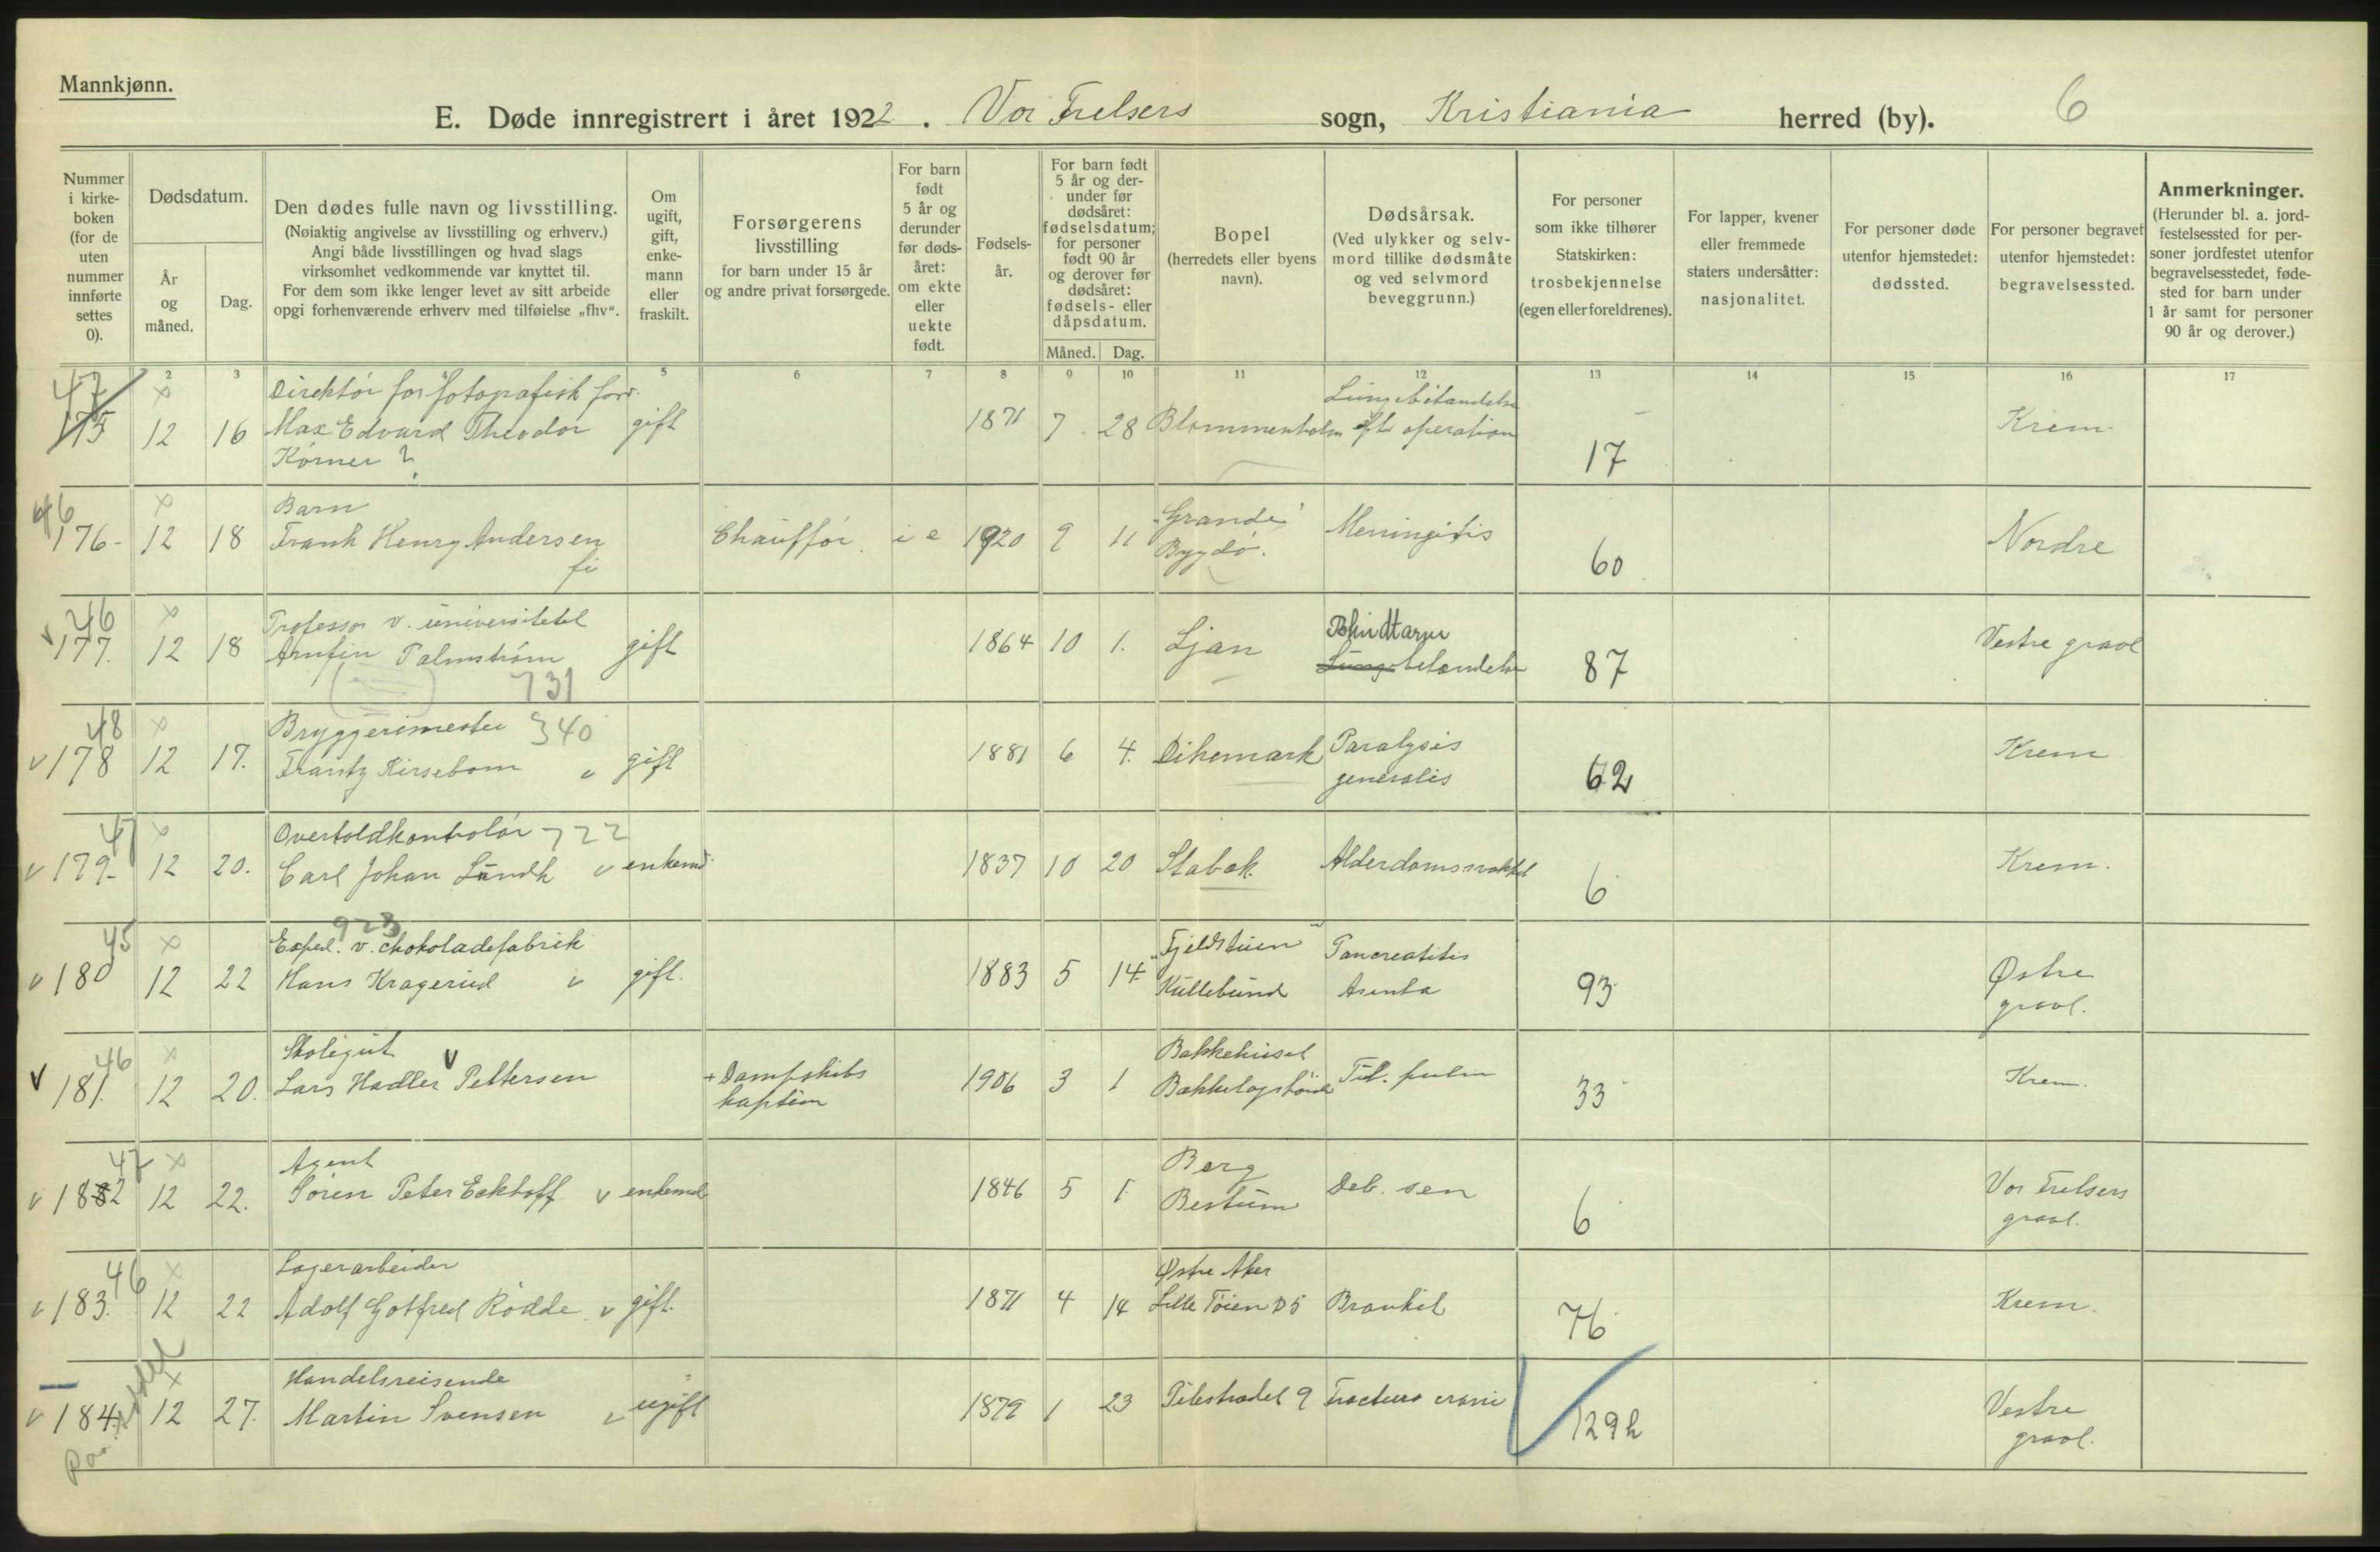 Mannkjønn.
E. Døde innregistrert i året 1922. Vor Frelsers sogn, Kristiania herred (by). 6
Nummer i kirke-boken (for de uten nummer innførte settes 0).
Dødsdatum.
År og måned.
Dag.
Den dødes fulle navn og livsstilling.
(Nøiaktig angivelse av livsstilling og erhverv.)
Angi både livsstillingen og hvad slags
virksomhet vedkommende var knyttet til.
For dem som ikke lenger levet av sitt arbeide
opgi forhenværende erhverv med tilføielse „fhv“.
Om ugift, gift, enke-mann eller fraskilt.
Forsørgerens
livsstilling
for barn under 15 år
og andre privat forsørgede.
For barn født 5 år og derunder før døds-året: om ekte eller uekte født.
Fødsels-år.
For barn født 5 år og der-under før dødsåret: fødselsdatum; for personer født 90 år og derover før dødsåret: fødsels- eller dåpsdatum.
Måned. Dag.
Bopel
(herredets eller byens
navn).
Dødsårsak.
(Ved ulykker og selv-
mord tillike dødsmåte
og ved selvmord
beveggrunn.)
For personer
som ikke tilhører
Statskirken:
trosbekjennelse
(egen eller foreldrenes).
For lapper, kvener
eller fremmede
staters undersåtter:
nasjonalitet.
For personer døde
utenfor hjemstedet:
dødssted.
For personer begravet
utenfor hjemstedet:
begravelsessted.
Anmerkninger.
(Herunder bl. a. jord-
festelsessted for per-
soner jordfestet utenfor
begravelsesstedet, føde-
sted for barn under
1 år samt for personer
90 år og derover.)
2 3 5 6 7 8 9 10 11 12 13 14 15 16 17
47 x Direktør for fotografisk forr. Lungebetændelse
175 12 16 Max Edvard Theodor gift 1871 7 28 Blommenholm eft operation Krem.
Körner ? 17
46 x Barn "Grande"
176 - 12 18 Frank Henry Andersen Chauffør. i e 1920 9 11 Bygdø. Meningitis 60 Nordre
fi
46 x Professor v. universitetet Blindtarm
v 177. 12 18 Arnfin Palmström gift 1864 10 1. Ljan Lungebetændelse 87 Vestre gravl
731
48 x Bryggerimester 340
v 178 12 17. Frantz Kirsebom v gift 1881 6 4. Dikemark Paralysis generalis 62 Krem
47 x Overtoldkontrolør 722
v 179 - 12 20. Carl Johan Lundh v enkemd. 1837 10 20 Stabæk. Alderdomssvakhet 6 Krem.
45 x 923 Exped. v. chokoladefabrik "Fjeldstuen"
v 180 12 22 Hans Kragerud v gift. 1883 5 14. Kullebund Pancreatitis Acuta 93 Østre gravl.
46 x Skolegut v Bakkehuset
v 181. 12 20. Lars Hadler Pettersen + Dampskibs kaptein 1906 3 1 Bækkelagshøida Tub. pulm 33 Krem.
47 x Agent Berg
v 182 12 22. Søren Peter Eckhoff v enkemd 1846 5 1 Bestum Deb. sen 6 Vor Frelsers gravl.
46 x Lagerarbeider Østre Aker
v 183. 12 22 Adolf Gotfred Rödde. v gift. 1871 4 14 Lille Tøien D5 Bronkit 76 Krem.
x Handelsreisende
v 184. 12 27. Martin Svensen v ugift 1879 1 23 Pilestrædet 9 Fractura cranii 129 h Vestre gravl.